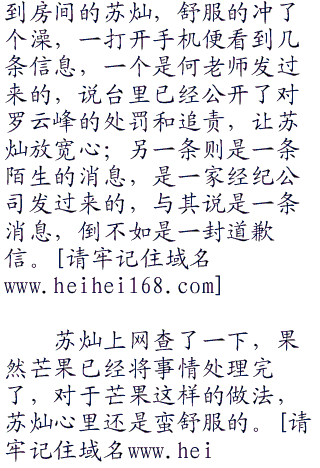 到房间的苏灿，舒服的冲了
个澡，一打开手机便看到几
条信息，一个是何老师发过
来的，说台里已经公开了对
罗云峰的处罚和追责，让苏
灿放宽心；另一条则是一条
陌生的消息，是一家经纪公
司发过来的，与其说是一条
消息，倒不如是一封道歉
信。[请牢记住域名
www.heihei168.com]
苏灿上网查了一下，果
然芒果已经将事情处理完
了，对于芒果这样的做法，
苏灿心里还是蛮舒服的。[请
牢记住域名www.hei